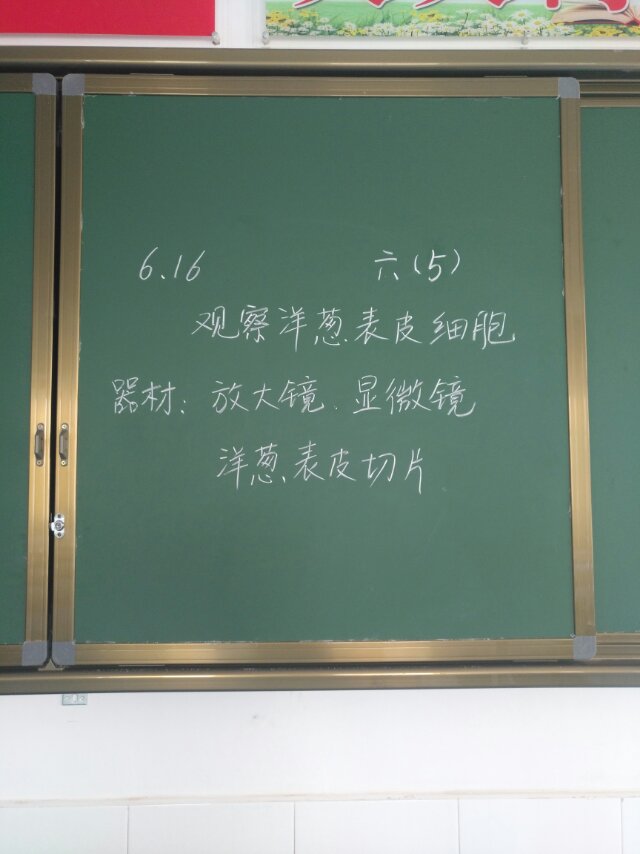 6.16 六(5)
观察洋葱表皮细胞
器材：放大镜、显微镜
洋葱表皮切片